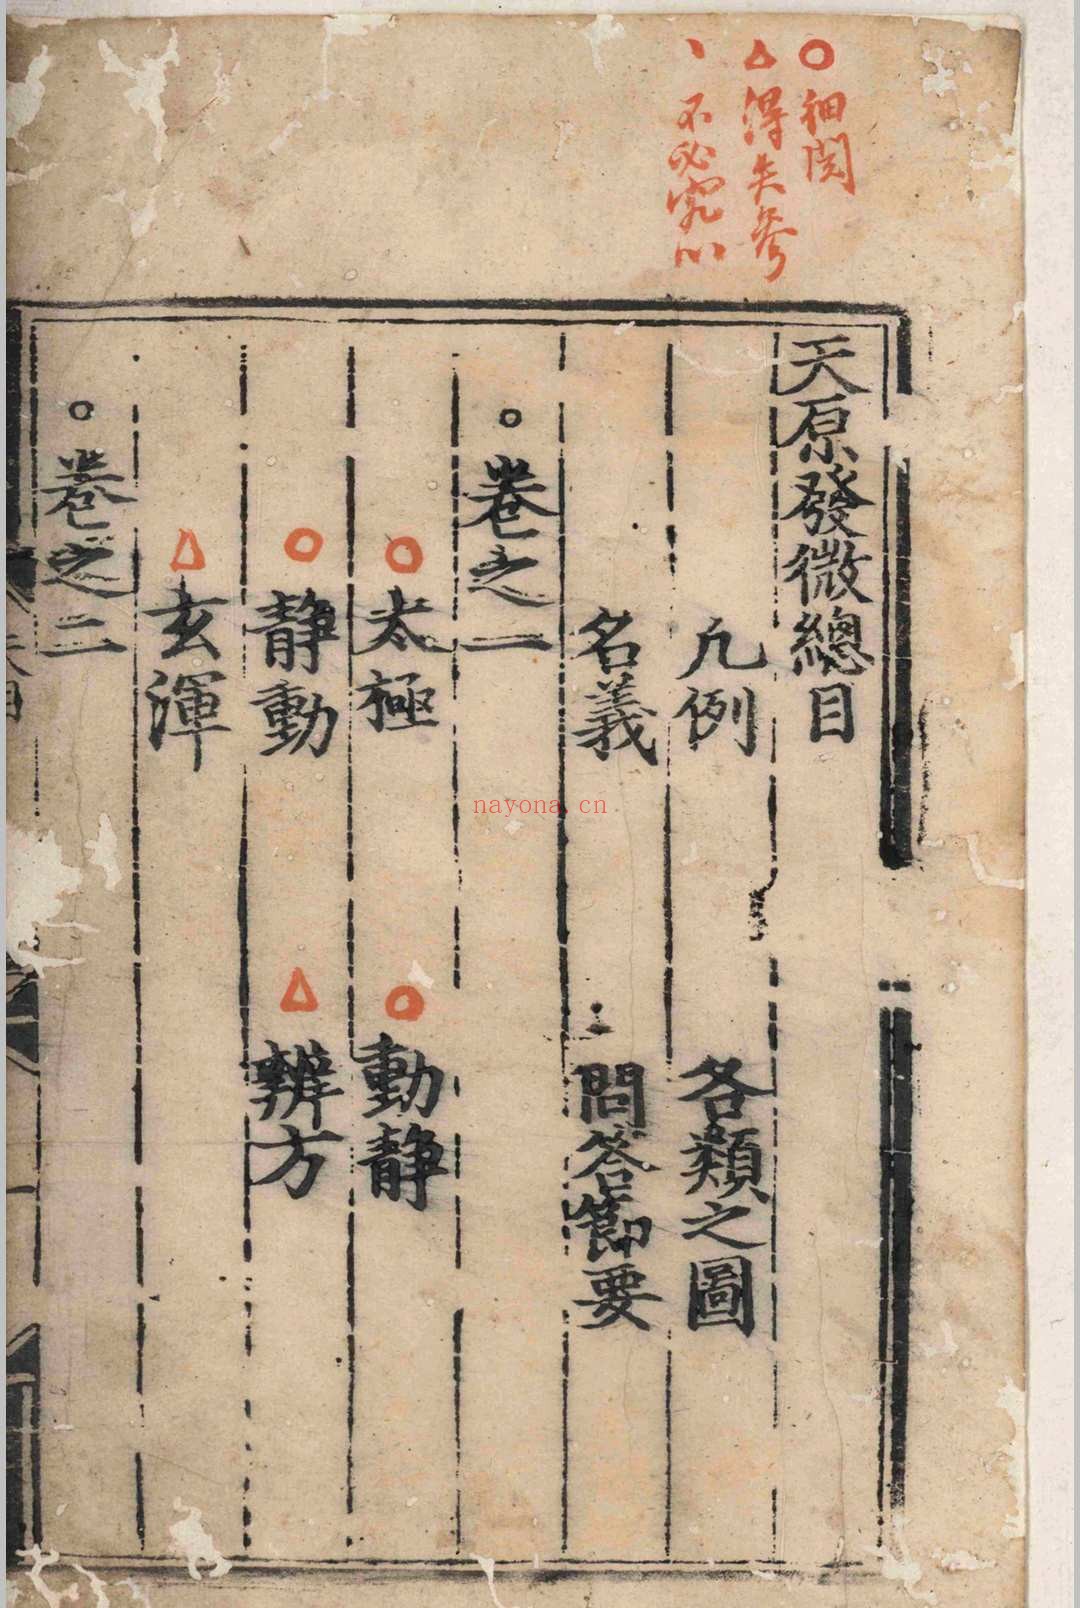 ○細閱
△得失參
丶不必究心
天原發微總目
凡例 各類之圖
名義 問答節要
○卷之一
○太極 ○動靜
○靜動 △辨方
△玄渾
○卷之二
nayona.cn